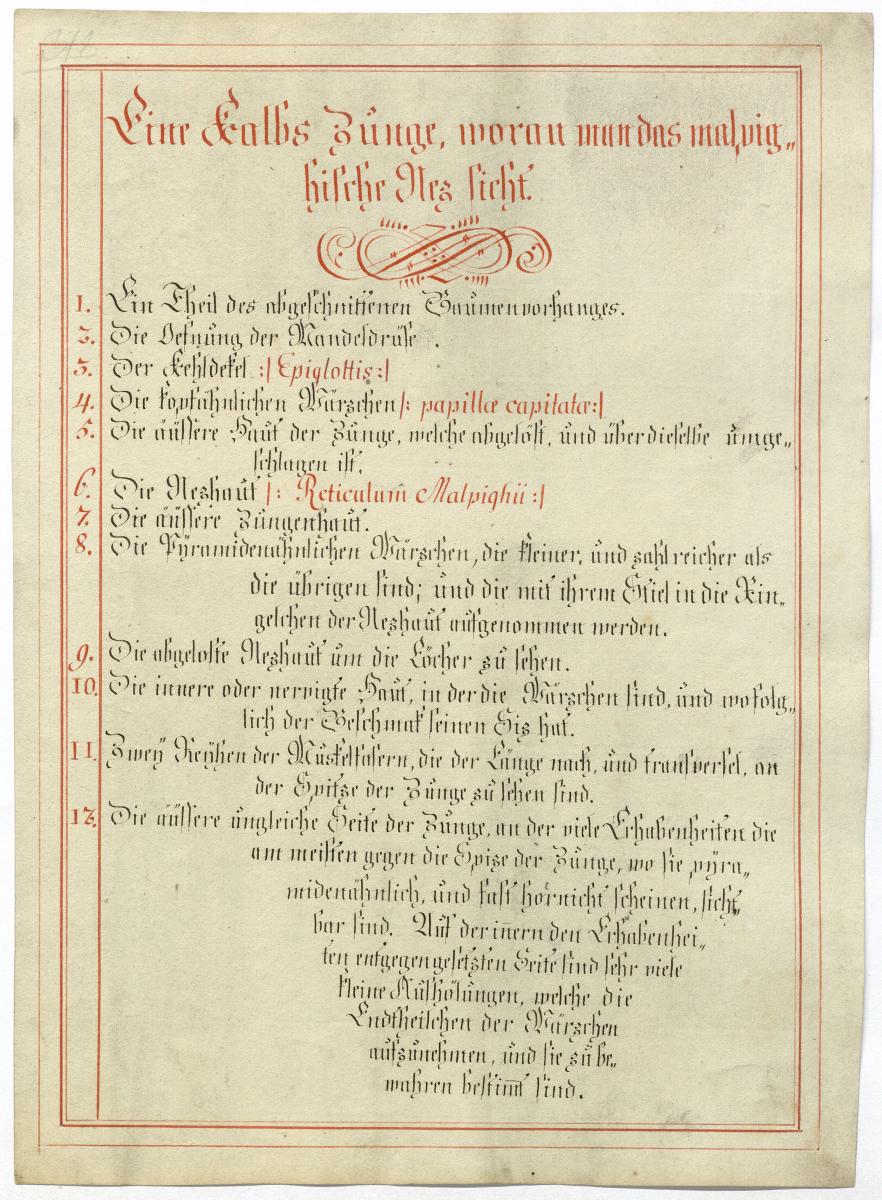 Eine Kalbs Zunge, woran man das malpig„
hische Nez sieht.
1. Ein Theil des abgeschnittenen Gaumenvorhanges.
2. Die Oefnung der Mandeldrüse .
3. Der Kehldekel :| Epiglottis:|
4. Die kopfähnlichen Wärzchen |: papillæ capitatæ:|
5. Die äussere Haut der Zunge, welche abgelößt, und über dieselbe umge„
schlagen ist.
6. Die Nezhaut |: Reticulum Malpighii :|
7. Die äussere Zungenhaut.
8. Die Pÿramidenähnlichen Wärzchen, die kleiner, und zahlreicher als
die übrigen sind; und die mit ihrem Stiel in die Rin„
gelchen der Nezhaut aufgenommen werden.
9. Die abgeloste Nezhaut um die Löcher zu sehen.
10. Die innere oder nervigte Haut, in der die Wärzchen sind, und wofolg„
lich der Geschmak seinen Siz hat.
11. Zweÿ Reÿhen der Muskelfasern, die der Länge nach, und transversel, an
der Spitze der Zunge zu sehen sind.
12. Die äüssere ungleiche Seite der Zunge, an der viele Erhabenheiten die
am meisten gegen die Spize der Zunge, wo sie pÿra„
midenähnlich, und fast hornicht scheinen, sicht„
bar sind. Auf der iñern den Erhabenhei„
ten entgegengesetzten Seite sind sehr viele
kleine Aushölungen, welche die
Endtheilchen der Wärzchen
aufzunehmen, und sie zu be„
wahren bestim̄t sind.